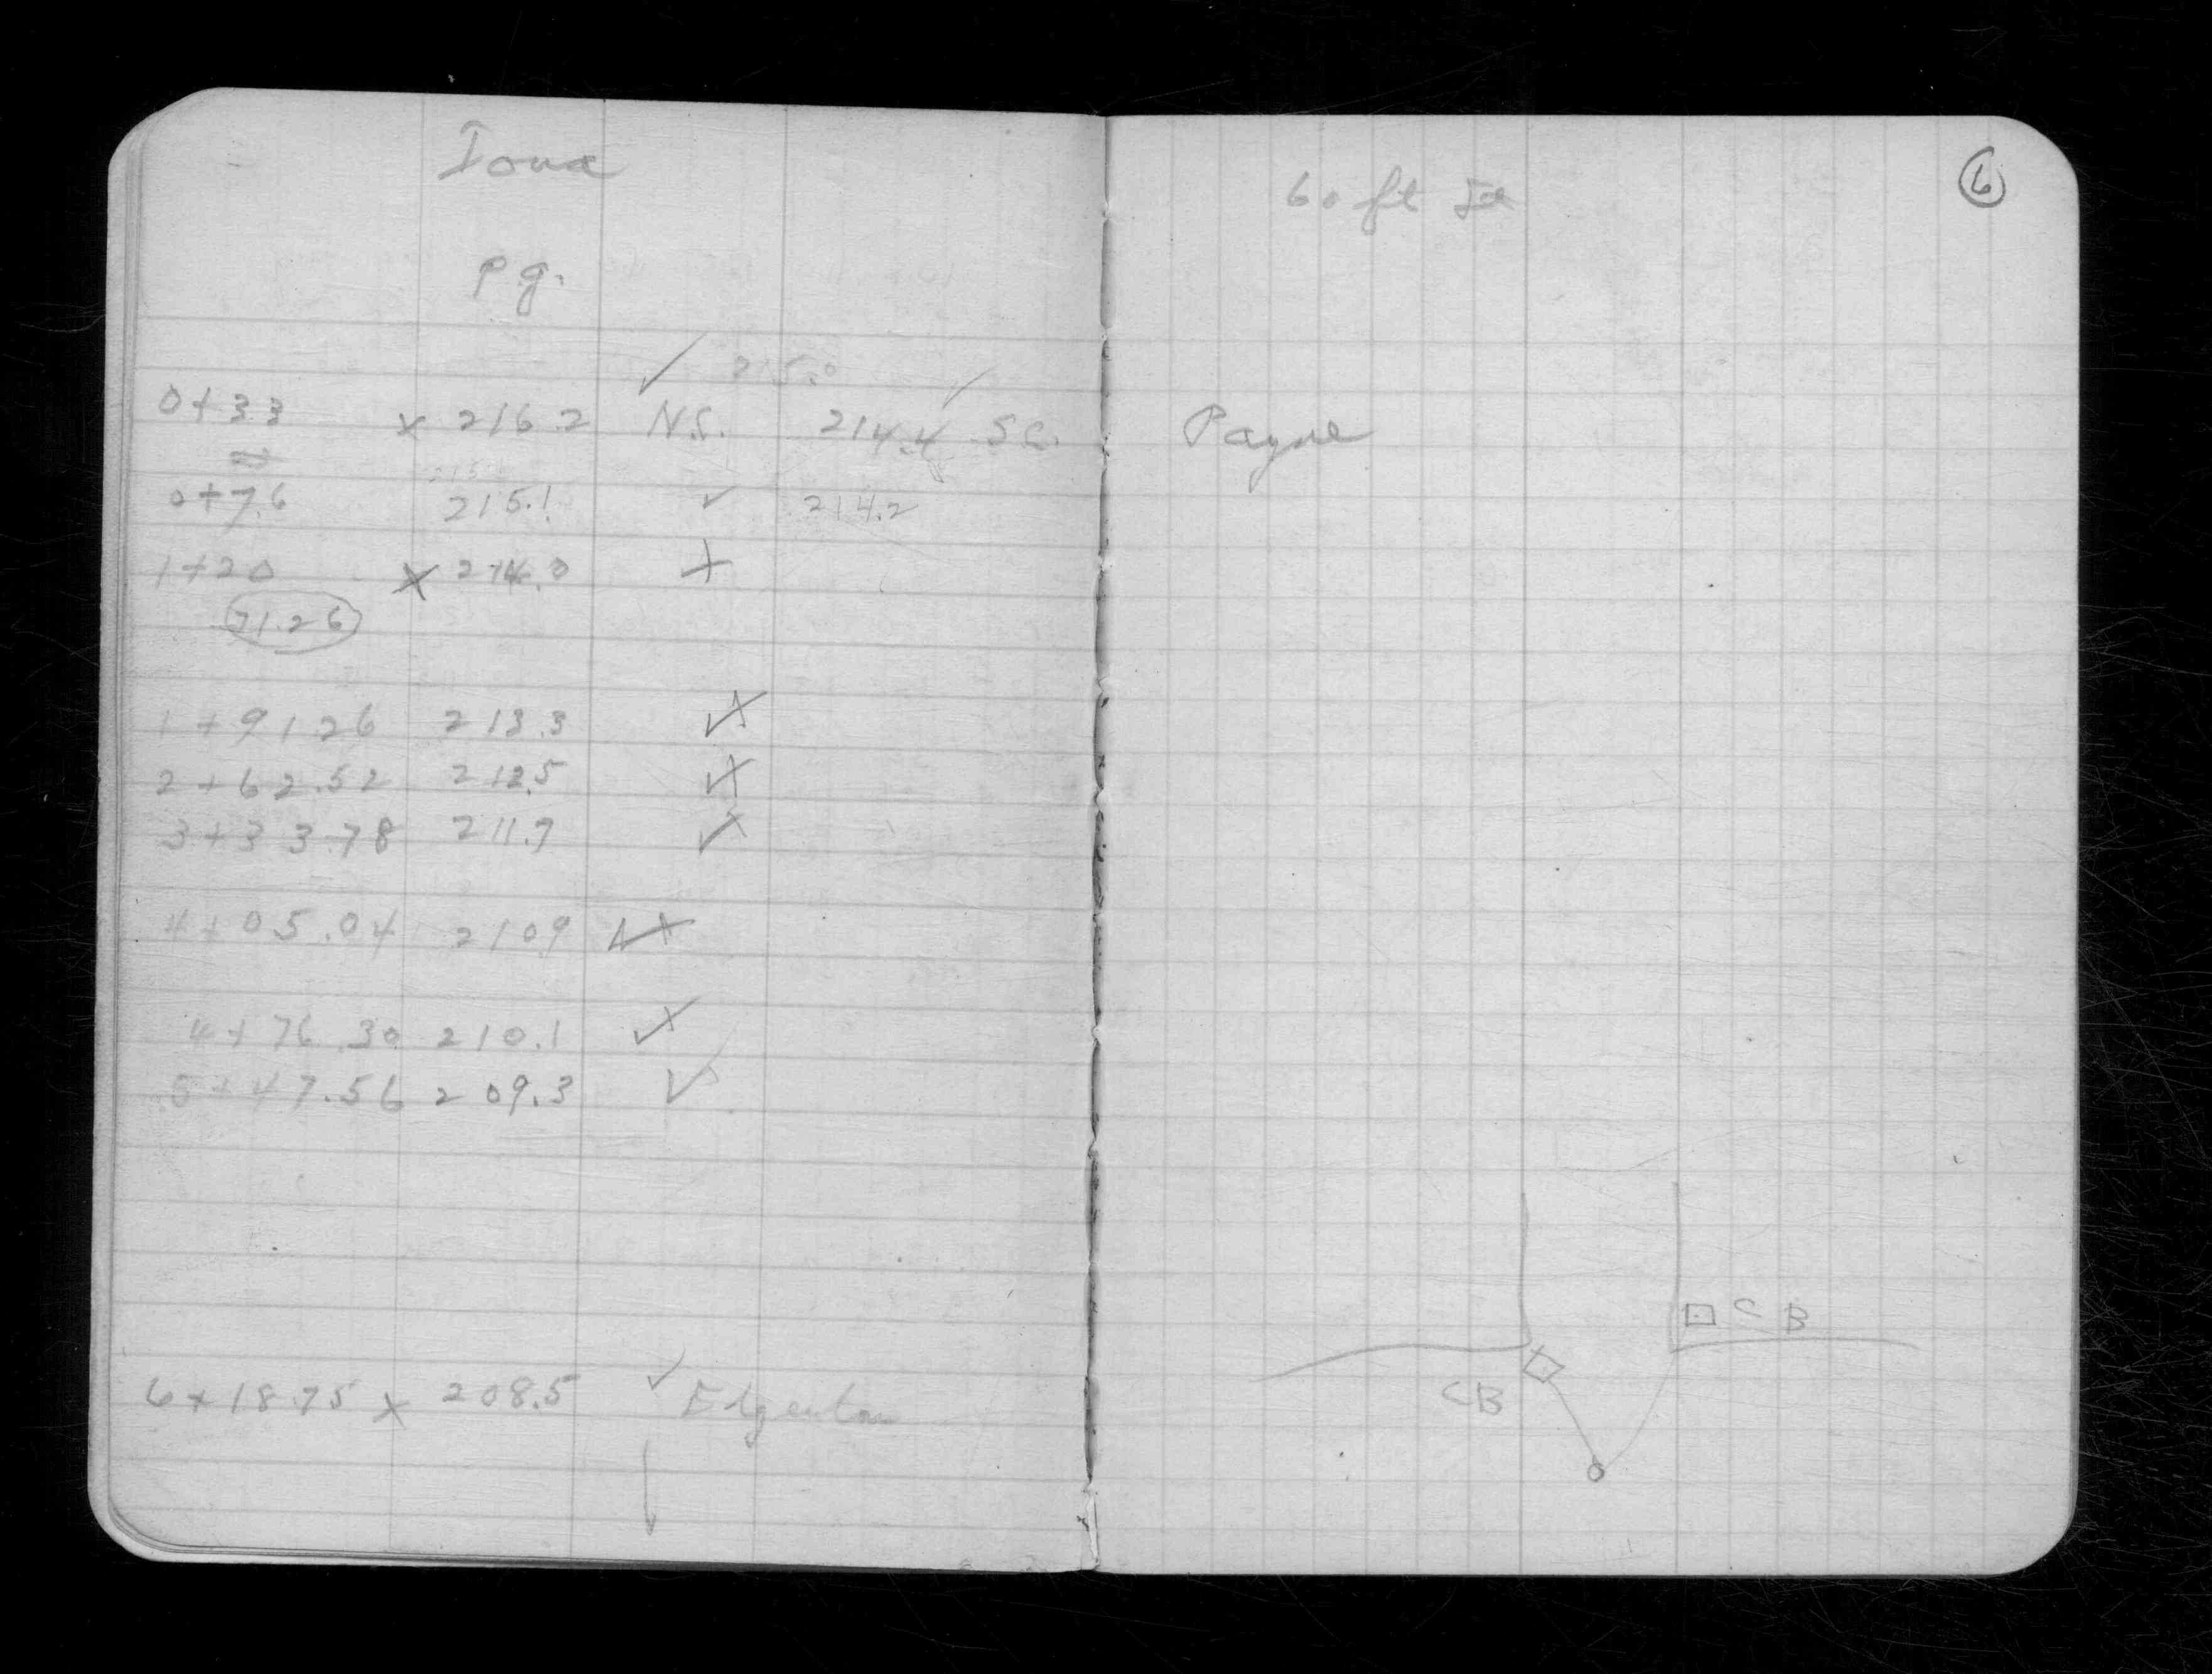 Iowa
60 ft
6
pg.
✓ 215.0
0+33 x 216.2 N.S. 214.4 SC.
Payne
0+76 215.1 ✓ 214.2
1+20 x 214.0 +
71.26
1+91.26 213.3
2+62.52 212.5
3+33.78 211.7
4+05.04 210.9
4+76.30 210.1
5+47.56 209.3 ✓
CB
CB
6+18.75 x 208.5 ✓ Edgerton